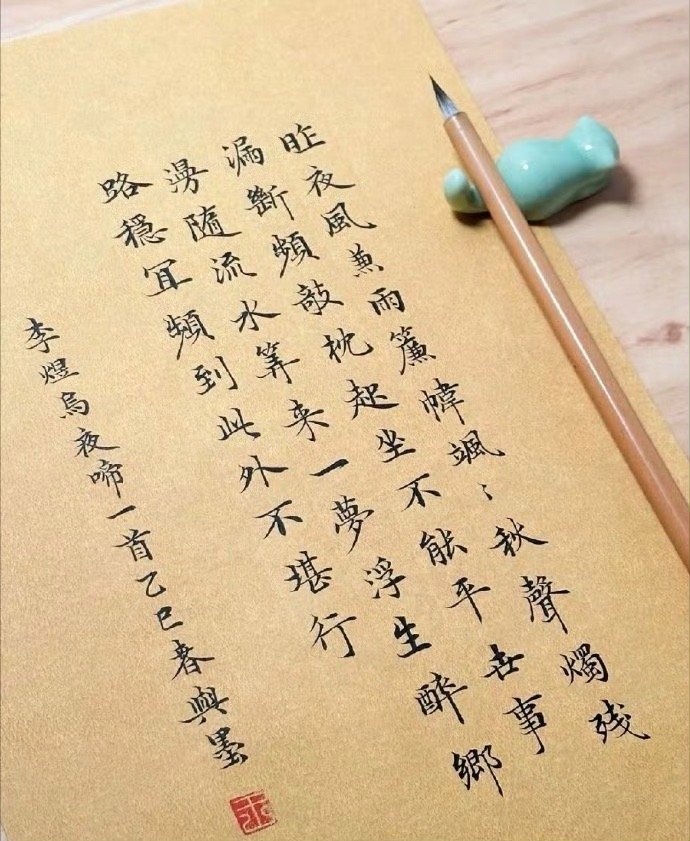 昨夜風兼雨簾幃颯〻秋聲燭残
漏斷頻敲枕起坐不能平世事
漫隨流水筭来一夢浮生醉鄉
路穩冝頻到此外不堪行
李煜烏夜啼一首乙巳春興墨